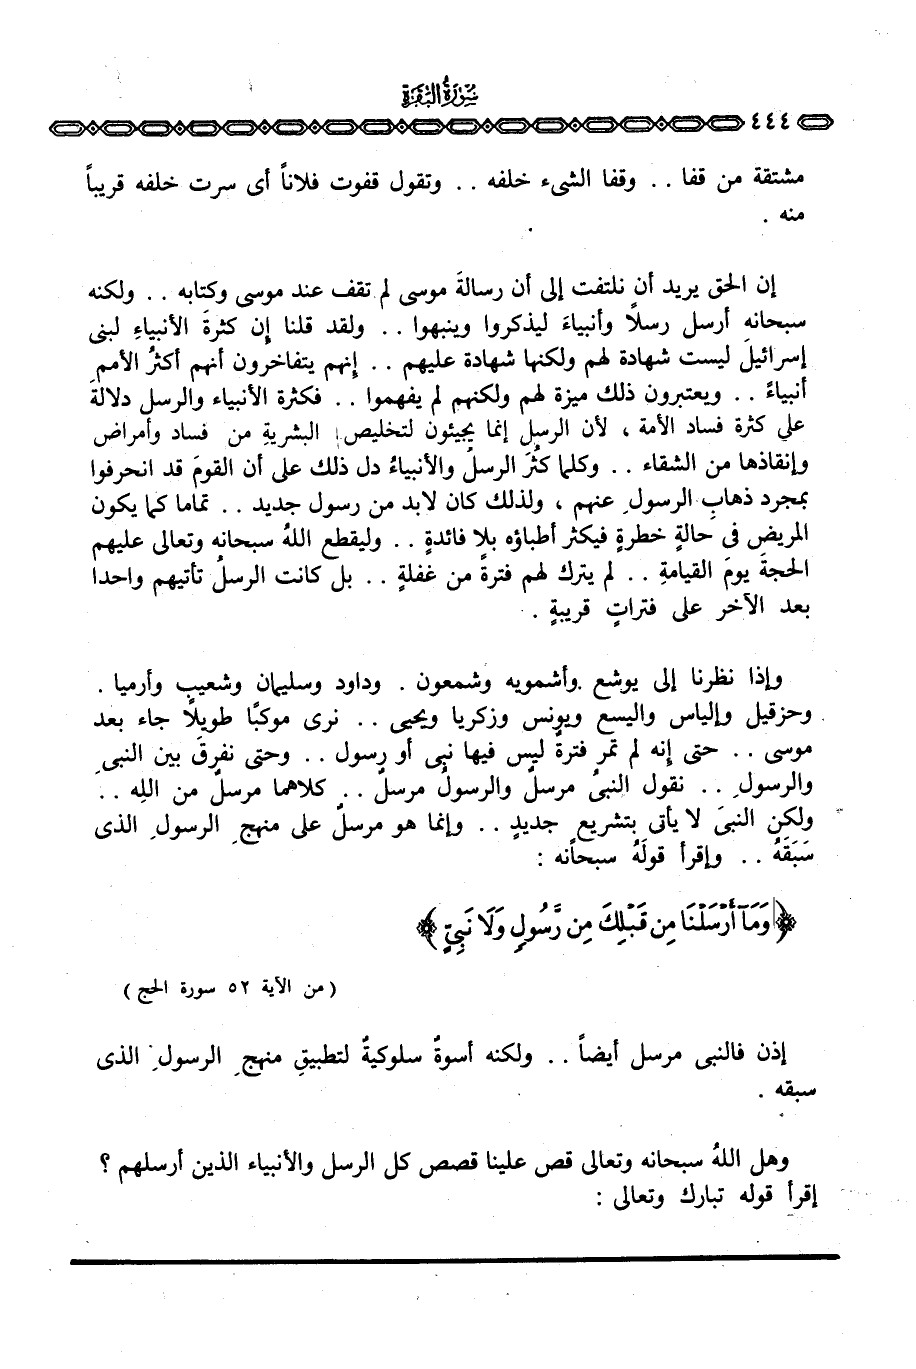 سورة البقرة
٤٤٤
مشتقة من قفا .. وقفا الشىء خلفه .. وتقول قفوت فلاناً أى سرت خلفه قريباً
منه .
إن الحق يريد أن نلتفت إلى أن رسالةَ موسى لم تقف عند موسى وكتابه .. ولكنه
سبحانه أرسل رسلاً وأنبياءَ ليذكروا وينبهوا .. ولقد قلنا إن كثرةَ الأنبياءِ لبنى
إسرائيلَ ليست شهادة لهم ولكنها شهادة عليهم .. إنهم يتفاخرون أنهم أكثرُ الأممِ
أنبياءً .. ويعتبرون ذلك ميزة لهم ولكنهم لم يفهموا .. فكثرة الأنبياء والرسل دلالةَ
على كثرة فساد الأمة ، لأن الرسل إنما يجيئون لتخليص البشريةِ من فساد وأمراض
وإنقاذها من الشقاء .. وكلما كثُرَ الرسلُ والأنبياءُ دل ذلك على أن القومَ قد انحرفوا
بمجرد ذهابِ الرسولِ عنهم ، ولذلك كان لابد من رسول جديد .. تماما كما يكون
المريض فى حالةٍ خطرةٍ فيكثر أطباؤه بلا فائدةٍ .. وليقطع اللهُ سبحانه وتعالى عليهم
الحجةَ يومَ القيامةِ .. لم يترك لهم فترةً من غفلةٍ .. بل كانت الرسلُ تأتيهم واحدا
بعد الآخر على فتراتٍ قريبةٍ .
وإذا نظرنا إلى يوشع وأشمويه وشمعون . وداود وسليمان وشعيب وأرميا .
وحزقيل وإلياس واليسع ويونس وزكريا ويحيى .. نرى موكبًا طويلاً جاء بعد
موسى .. حتى إنه لم تمر فترةٌ ليس فيها نبى أو رسول .. وحتى نفرقَ بين النبىِ
والرسولِ .. نقول النبىُ مرسلٌ والرسولُ مرسلٌ .. كلاهما مرسلٌ من اللهِ ..
ولكن النبىَ لا يأتى بتشريعٍ جديدٍ .. وإنما هو مرسلٌ على منهجِ الرسولِ الذى
سَبَقَهُ .. وإقرأ قولَهُ سبحانه :
﴿ وَمَآ أَرْسَلْنَا مِن قَبْلِكَ مِن رَّسُولٍ وَلَا نَبِىٍّ ﴾
( من الآية ٥٢ سورة الحج )
إذن فالنبى مرسل أيضاً .. ولكنه أسوةٌ سلوكيةٌ لتطبيقِ منهجِ الرسولِ الذى
سبقه .
وهل اللهُ سبحانه وتعالى قص علينا قصص كل الرسل والأنبياء الذين أرسلهم ؟
إقرأ قوله تبارك وتعالى :